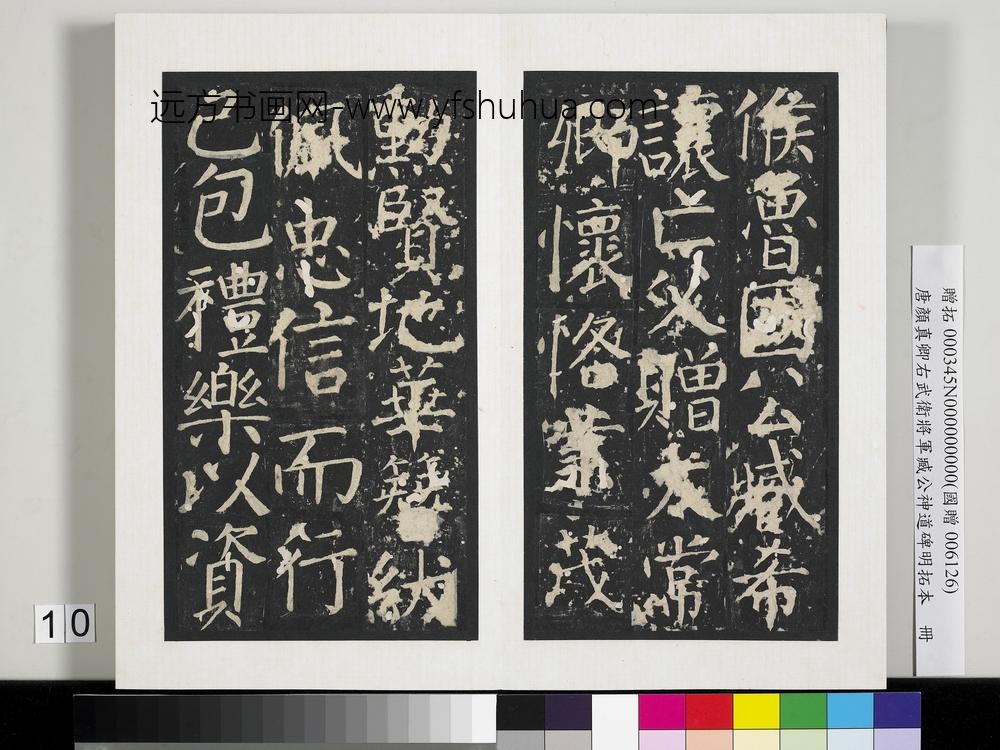 远方书画网-www.yfshuhua.com
侯魯國公臧希
讓亡父贈太常
卿懷恪業茂
勳賢地華簪紱
佩忠信而行
己包禮樂以資
贈拓 000345N000000000(國贈 006126)
唐顏真卿右武衛將軍臧公神道碑明拓本 冊
10